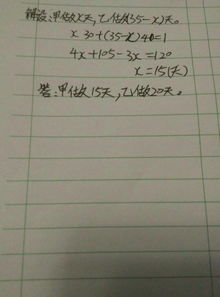 解设:甲做x天,乙做(35-x)天。
x 30+(35-x)40=1
4x+105-3x=120
x=15(天)
答:甲做15天,乙做20天。